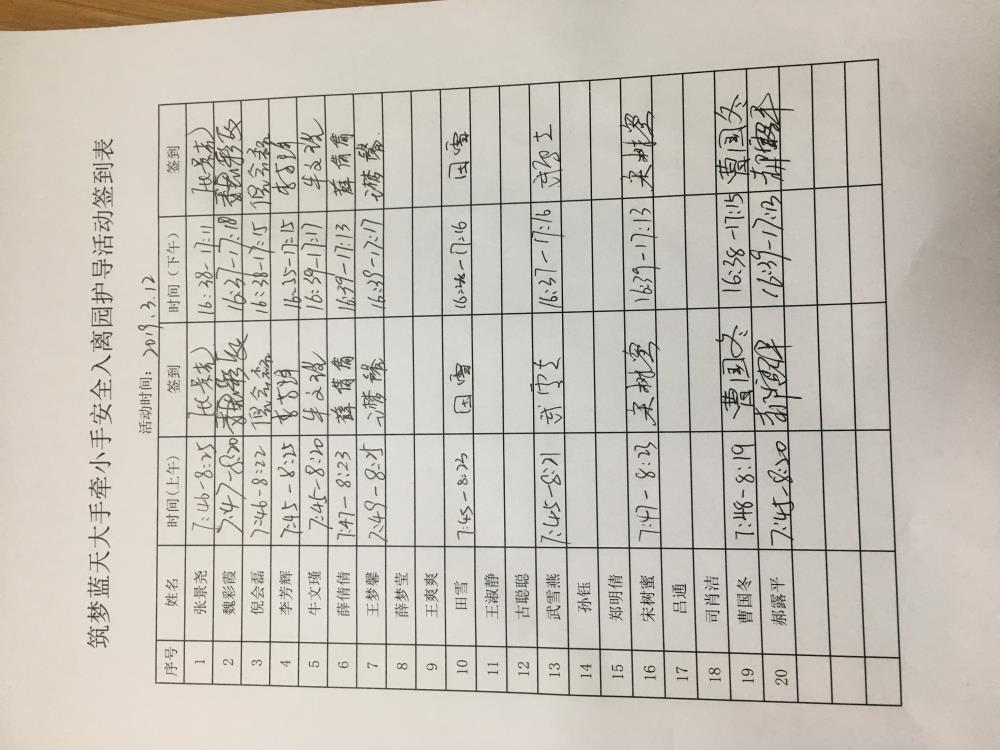 筑梦蓝天大手牵小手安全入离园护导活动签到表
活动时间：2019.3.12
序号 姓名 时间（上午） 签到 时间（下午） 签到
1 张景尧 7:46-8:25 张景尧 16:38-17:11 张景尧
2 魏彩霞 7:47-8:20 魏彩霞 16:37-17:18 魏彩霞
3 倪会磊 7:46-8:22 倪会磊 16:38-17:15 倪会磊
4 李芳辉 7:45-8:25 李芳辉 16:35-17:15 李芳辉
5 牛文瑾 7:45-8:20 牛文瑾 16:39-17:17 牛文瑾
6 薛倩倩 7:47-8:23 薛倩倩 16:39-17:13 薛倩倩
7 王梦馨 7:49-8:25 王梦馨 16:39-17:17 王梦馨
8 薛梦莹
9 王爽爽
10 田雪 7:45-8:23 田雪 16:48-17:16 田雪
11 王淑静
12 古聪聪
13 武雪燕 7:45-8:21 武雪燕 16:37-17:16
14 孙钰
15 郑明倩
16 宋树蜜 7:47-8:23 宋树蜜 16:39-17:13 宋树蜜
17 吕通
18 司肖洁
19 曹国冬 7:48-8:19 曹国冬 16:38-17:15 曹国冬
20 郝露平 7:45-8:20 郝露平 16:39-17:13 郝露平